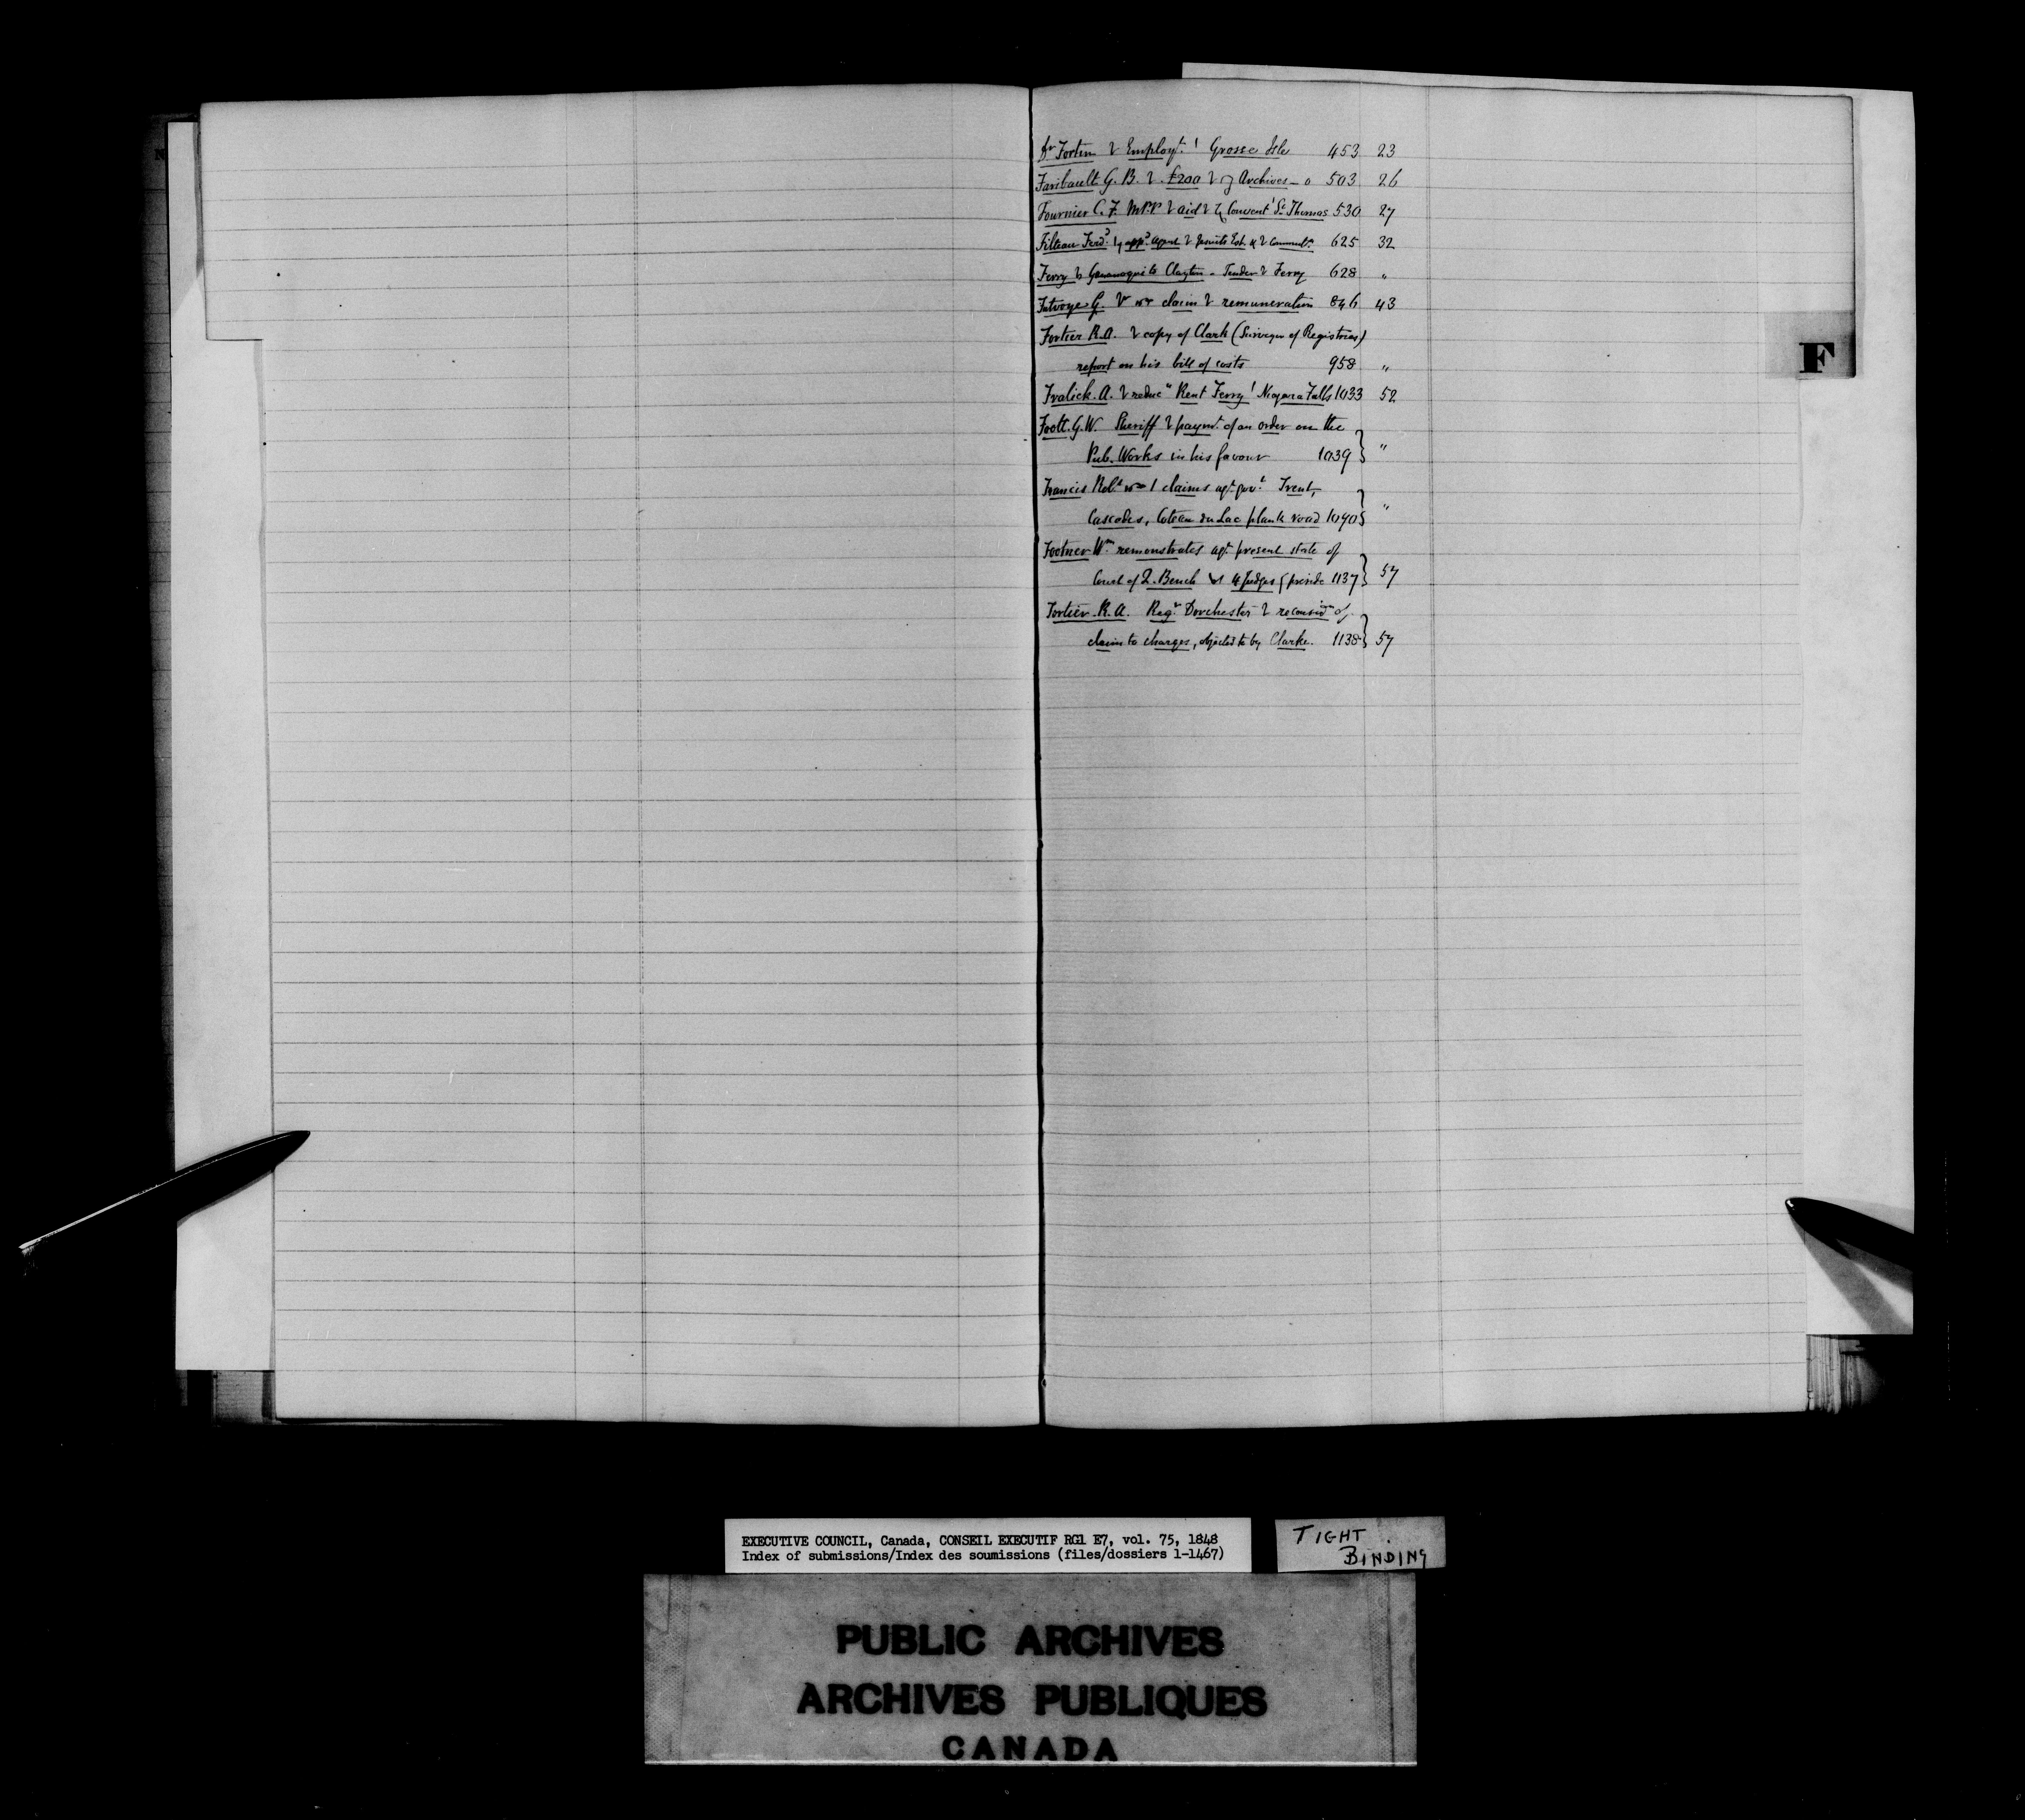 Dr Fortin Employt. Grosse Isle 453 23
Faribault G. B. £200 Archives 503 26
Fournier C. F. M.P.P aid Convent St Thomas 530 27
Filteau Ferdd. appd. agent Jesuits Est. & 625 32
Ferry Gananoqui to Clayton - Tender Ferry 628 "
Futvoye G. claim remuneration 846 43
Fortier R.A. copy of Clark (Surveyor of Registries)
report on his bill of costs 958 "
Fralick. A. reducn Rent Ferry Niagara Falls 1033 52
Foott. G. W. Sheriff paymt. of an order on the
Pub. Works in his favour 1039 "
Francis Robt. claims agt. govt. Trent,
Cascades, Coteau du Lac plank road 1040 "
Footner Wm. remonstrates agt. present state of
Court of Q. Bench 4 Judges preside 1137 57
Fortier. R. A. Regr. Dorchester reconsion of
claim to charges, objected to by Clarke. 1138 57
F
EXECUTIVE COUNCIL, Canada, CONSEIL EXECUTIF RG1 E7, vol. 75, 1848
Index of submissions/Index des soumissions (files/dossiers 1-1467)
TIGHT
BINDING
PUBLIC ARCHIVES
ARCHIVES PUBLIQUES
CANADA